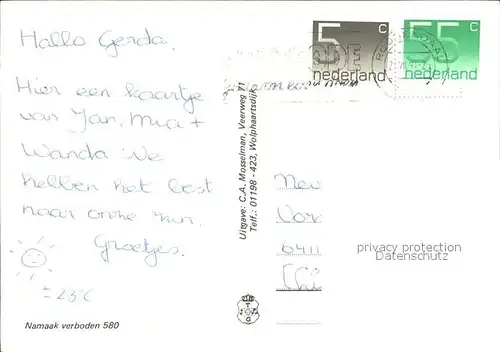 Hallo Gerda.
Hier een kaartje
van Jan, Mia +
Wanda. We
hebben het best
naar onze zin.
Groetjes.
± 25°C
Namaak verboden 580
Uitgave: C.A. Mosselman, Veerweg 71
Telf.: 01198 - 423, Wolphaartsdijk
T
G
5 c
nederland
55 c
nederland
6411
privacy protection
Datenschutz